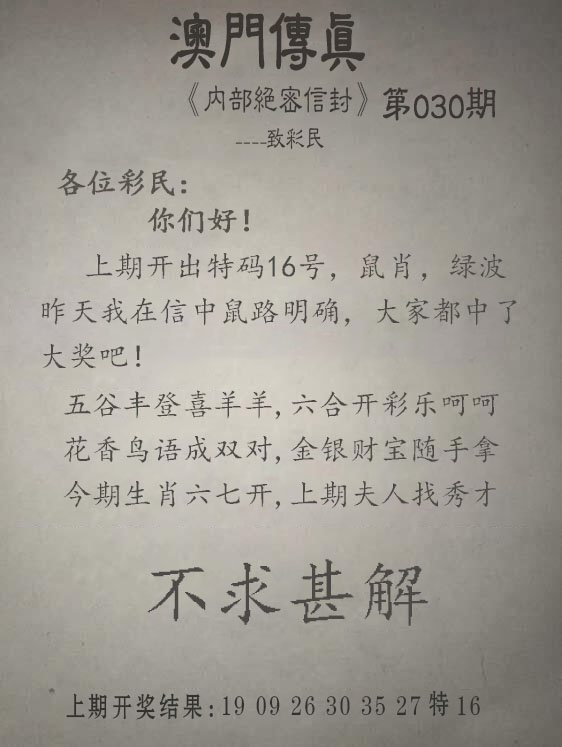 澳門傳真
《内部絕密信封》第030期
----致彩民
各位彩民：
你们好！
上期开出特码16号，鼠肖，绿波
昨天我在信中鼠路明确，大家都中了
大奖吧！
五谷丰登喜羊羊,六合开彩乐呵呵
花香鸟语成双对,金银财宝随手拿
今期生肖六七开,上期夫人找秀才
不求甚解
上期开奖结果:19 09 26 30 35 27 特 16